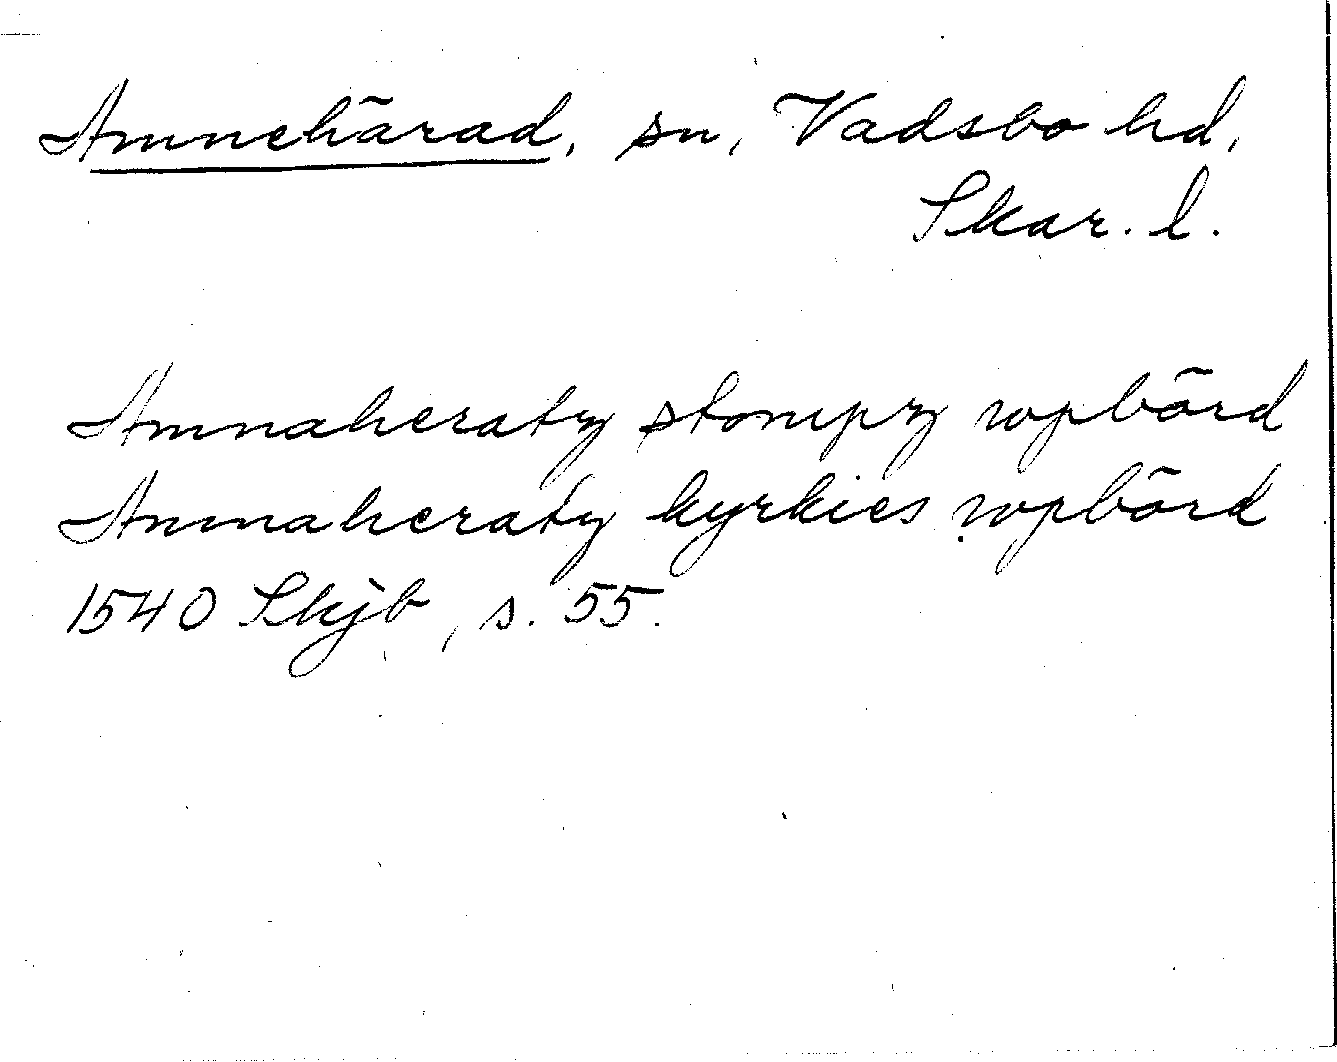 Amnehärad, sn, Vadsbo hd,
Skar. l.
Amnaheratz stompz wpbörd
Amnaheratz kyrkies wpbörd
1540 Skjb, s. 55.